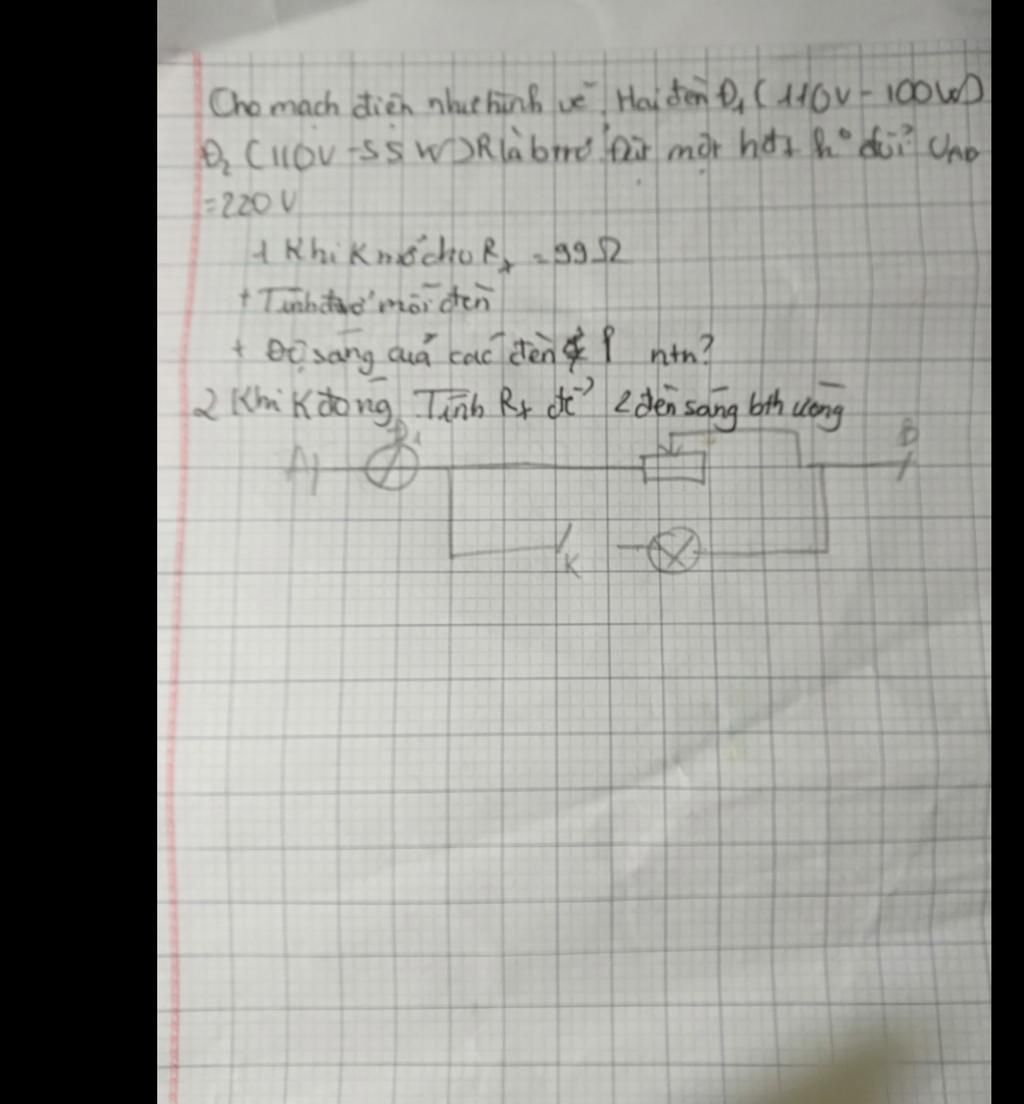 Cho mạch điện như hình vẽ. Hai đèn Đ1 (110V - 100W)
Đ2 (110V - 55W) R là btrở Đặt một hđt kº đổi UAB
= 220 V
1 Khi K mở cho Rx = 99Ω
+ Tính đtrở mỗi đèn
+ Độ sáng quả các đèn ntn?
2 Khi K đóng, Tính Rx để 2 đèn sáng bth ường
A Đ1 B
K